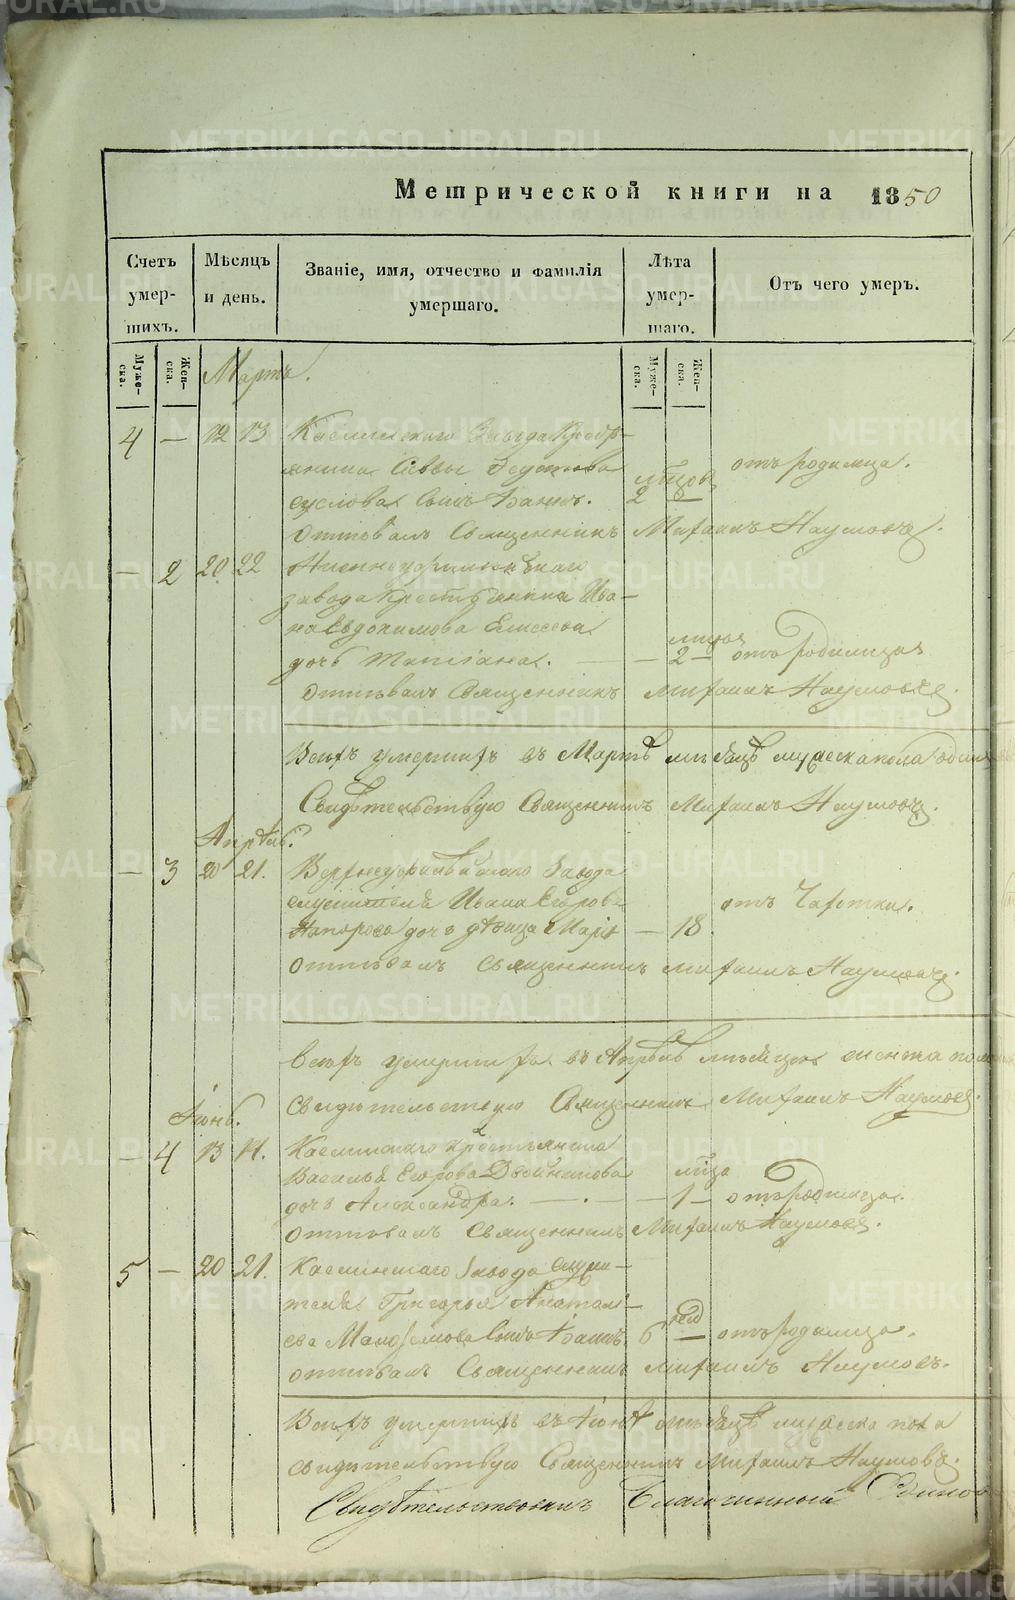 Метрической книги на 1850
Счетъ умер- шихъ.
Мѣсяцъ и день.
Званіе, имя, отчество и фамилія умершаго.
Лѣта умер- шаго.
Отъ чего умеръ.
Муже- ска.
Жен- ска.
Мартъ.
Муже- ска.
Жен- ска.
4 — 12 13 Каслинскаго Завода
Саввы
Суслова сынъ Іоаннъ. 2 отъ родимца.
Отпѣвалъ Священникъ Михаилъ Наумовъ.
— 2 20 22
завода крестьянина Ива-
на Евдокимова Елисеева
дочь Татіана. — 2 — отъ родимца
Отпѣвалъ Священникъ Михаилъ Наумовъ.
Всѣхъ умершихъ въ Мартѣ мѣсяцѣ мужеска пола
Свидѣтельствую Священникъ Михаилъ Наумовъ.
Апрѣль.
— 3 20 21. Верхнеуфалейскаго Завода
служителя Ивана Егорова
дочь дѣвица — 18. отъ Чахотки.
Отпѣвалъ священникъ Михаилъ Наумовъ.
Всѣхъ въ Апрѣлѣ мѣсяцѣ женска пола
Свидѣтельствую Священникъ Михаилъ Наумовъ.
Іюнь.
— 4 13 14. Каслинскаго крестьянина
Василья Егорова Двойникова
дочь Александра. — — 1 — отъ родимца.
Отпѣвалъ Священникъ Михаилъ Наумовъ.
5 — 20 21. Каслинскаго Завода служи-
теля Григорья
сынъ Іоаннъ. 6 нед — отъ родимца.
Отпѣвалъ Священникъ Михаилъ Наумовъ.
Всѣхъ умершихъ въ Іюнѣ мѣсяцѣ мужеска пола
свидѣтельствую Священникъ Михаилъ Наумовъ.
Благочинный
METRIKI.GASO-URAL.RU